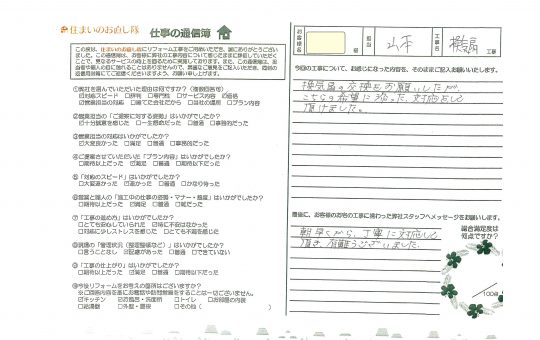 住まいのお直し隊
仕事の通信簿
この度は、住まいのお直し隊にリフォーム工事をご用命いただき、誠にありがとうござい
ました。この通信簿は、お客様に弊社の工事内容について感じたままに評価していただく
①弊社を選んでいただいた理由は何ですか？（複数回答可）
☑対応スピード □評判 □専門性 □サービス内容 □価格
☑営業担当の対応 □建てた会社だから □当社の場所 □プラン内容
②営業担当の「ご提案に対する姿勢」はいかがでしたか？
☑十分誠意を感じた □一生懸命だった □普通 □事務的だった
③営業担当の対応はいかがでしたか？
☑大変良かった □満足 □普通 □悪かった
④ご提案させていただいた「プラン内容」はいかがでしたか？
□期待以上だった ☑満足 □普通 □期待以下だった
⑤「対応のスピード」はいかがでしたか？
□大変速かった ☑速かった □普通 □かなり待った
⑥営業と職人の「施工中の仕事の姿勢・マナー・態度」はいかがでしたか？
□期待以上だった ☑満足 □普通 □悪かった
⑦「工事の進め方」はいかがでしたか？
□とても安心していられた ☑特に不安はなかった
□対応に少しストレスを感じた □とても不満を感じた
⑧現場の「管理状況（整理整頓など）」はいかがでしたか？
□言うことなし ☑配慮があった □普通 □できていない
⑨「工事の仕上がり」はいかがでしたか？
□期待以上だった ☑満足 □普通 □期待以下だった
⑩今後リフォームをお考えの箇所はございますか？
※ご回答内容を基にお電話や訪問営業をすることは一切ございません。
☑キッチン ☑お風呂・洗面所 □トイレ □お部屋の内装
□給湯器 □外壁・屋根 □その他（ ）
お客様名
担当
山本
工事名
換気扇
工事
今回の工事について、お感じになった内容を、そのままご記入お願いいたします。
換気扇の交換をお願いしたが、
こちらの希望に添った対応をして
頂けました。
最後に、お客様のお宅の工事に携わった弊社スタッフへメッセージをお願いします。
軽早くから、丁寧に対応して
頂き、有難うございました。
総合満足度は
何点ですか？
/100点